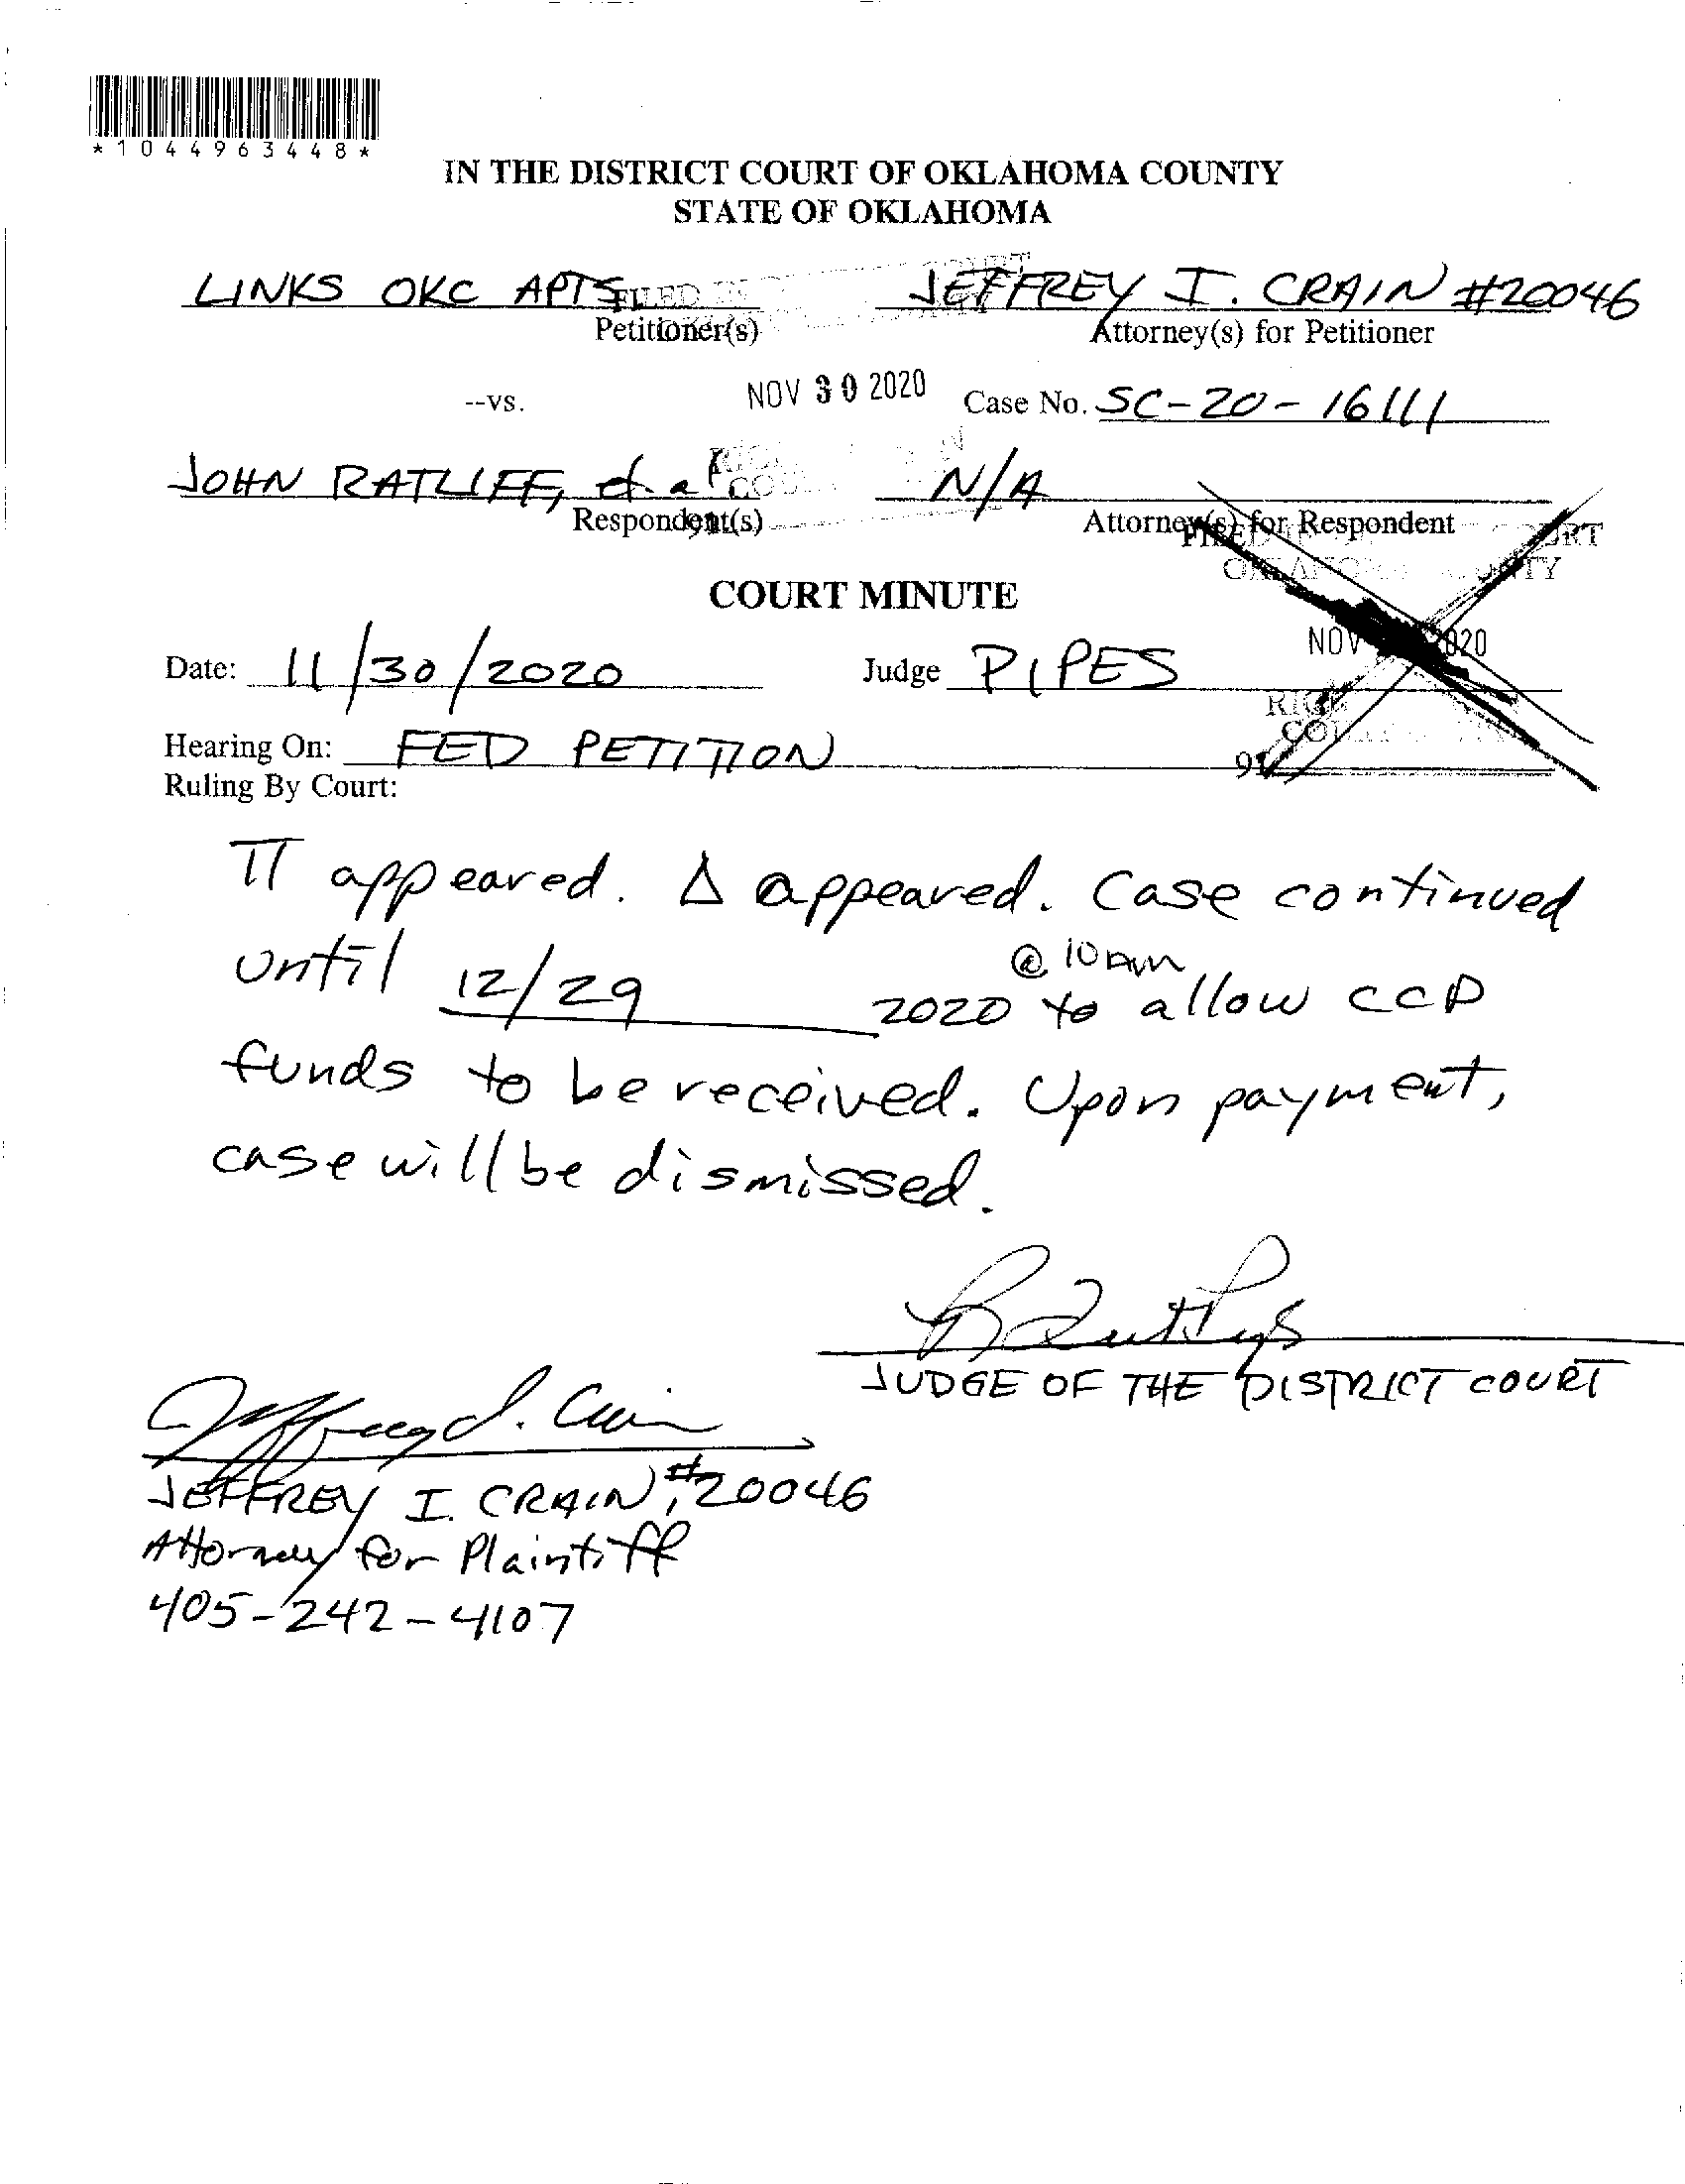 *1044963448*
IN THE DISTRICT COURT OF OKLAHOMA COUNTY
STATE OF OKLAHOMA
LINKS OKC APTS JEFFREY I. CRAIN #20046
FILED IN COURT
Petitioner(s) Attorney(s) for Petitioner
--vs. NOV 30 2020 Case No. SC-20-16111
JOHN RATLIFF, et. al N/A
Respondent(s) Attorney(s) for Respondent
COURT MINUTE
NOV 2020
Date: 11/30/2020 Judge PIPES
Hearing On: FED PETITION
Ruling By Court:
Π appeared. Δ appeared. Case continued
until 12/29 2020 @ 10 am to allow CCP
funds to be received. Upon payment,
case will be dismissed.
JUDGE OF THE DISTRICT COURT
Jeffrey I. Crain
JEFFREY I. CRAIN, #20046
Attorney for Plaintiff
405-242-4107